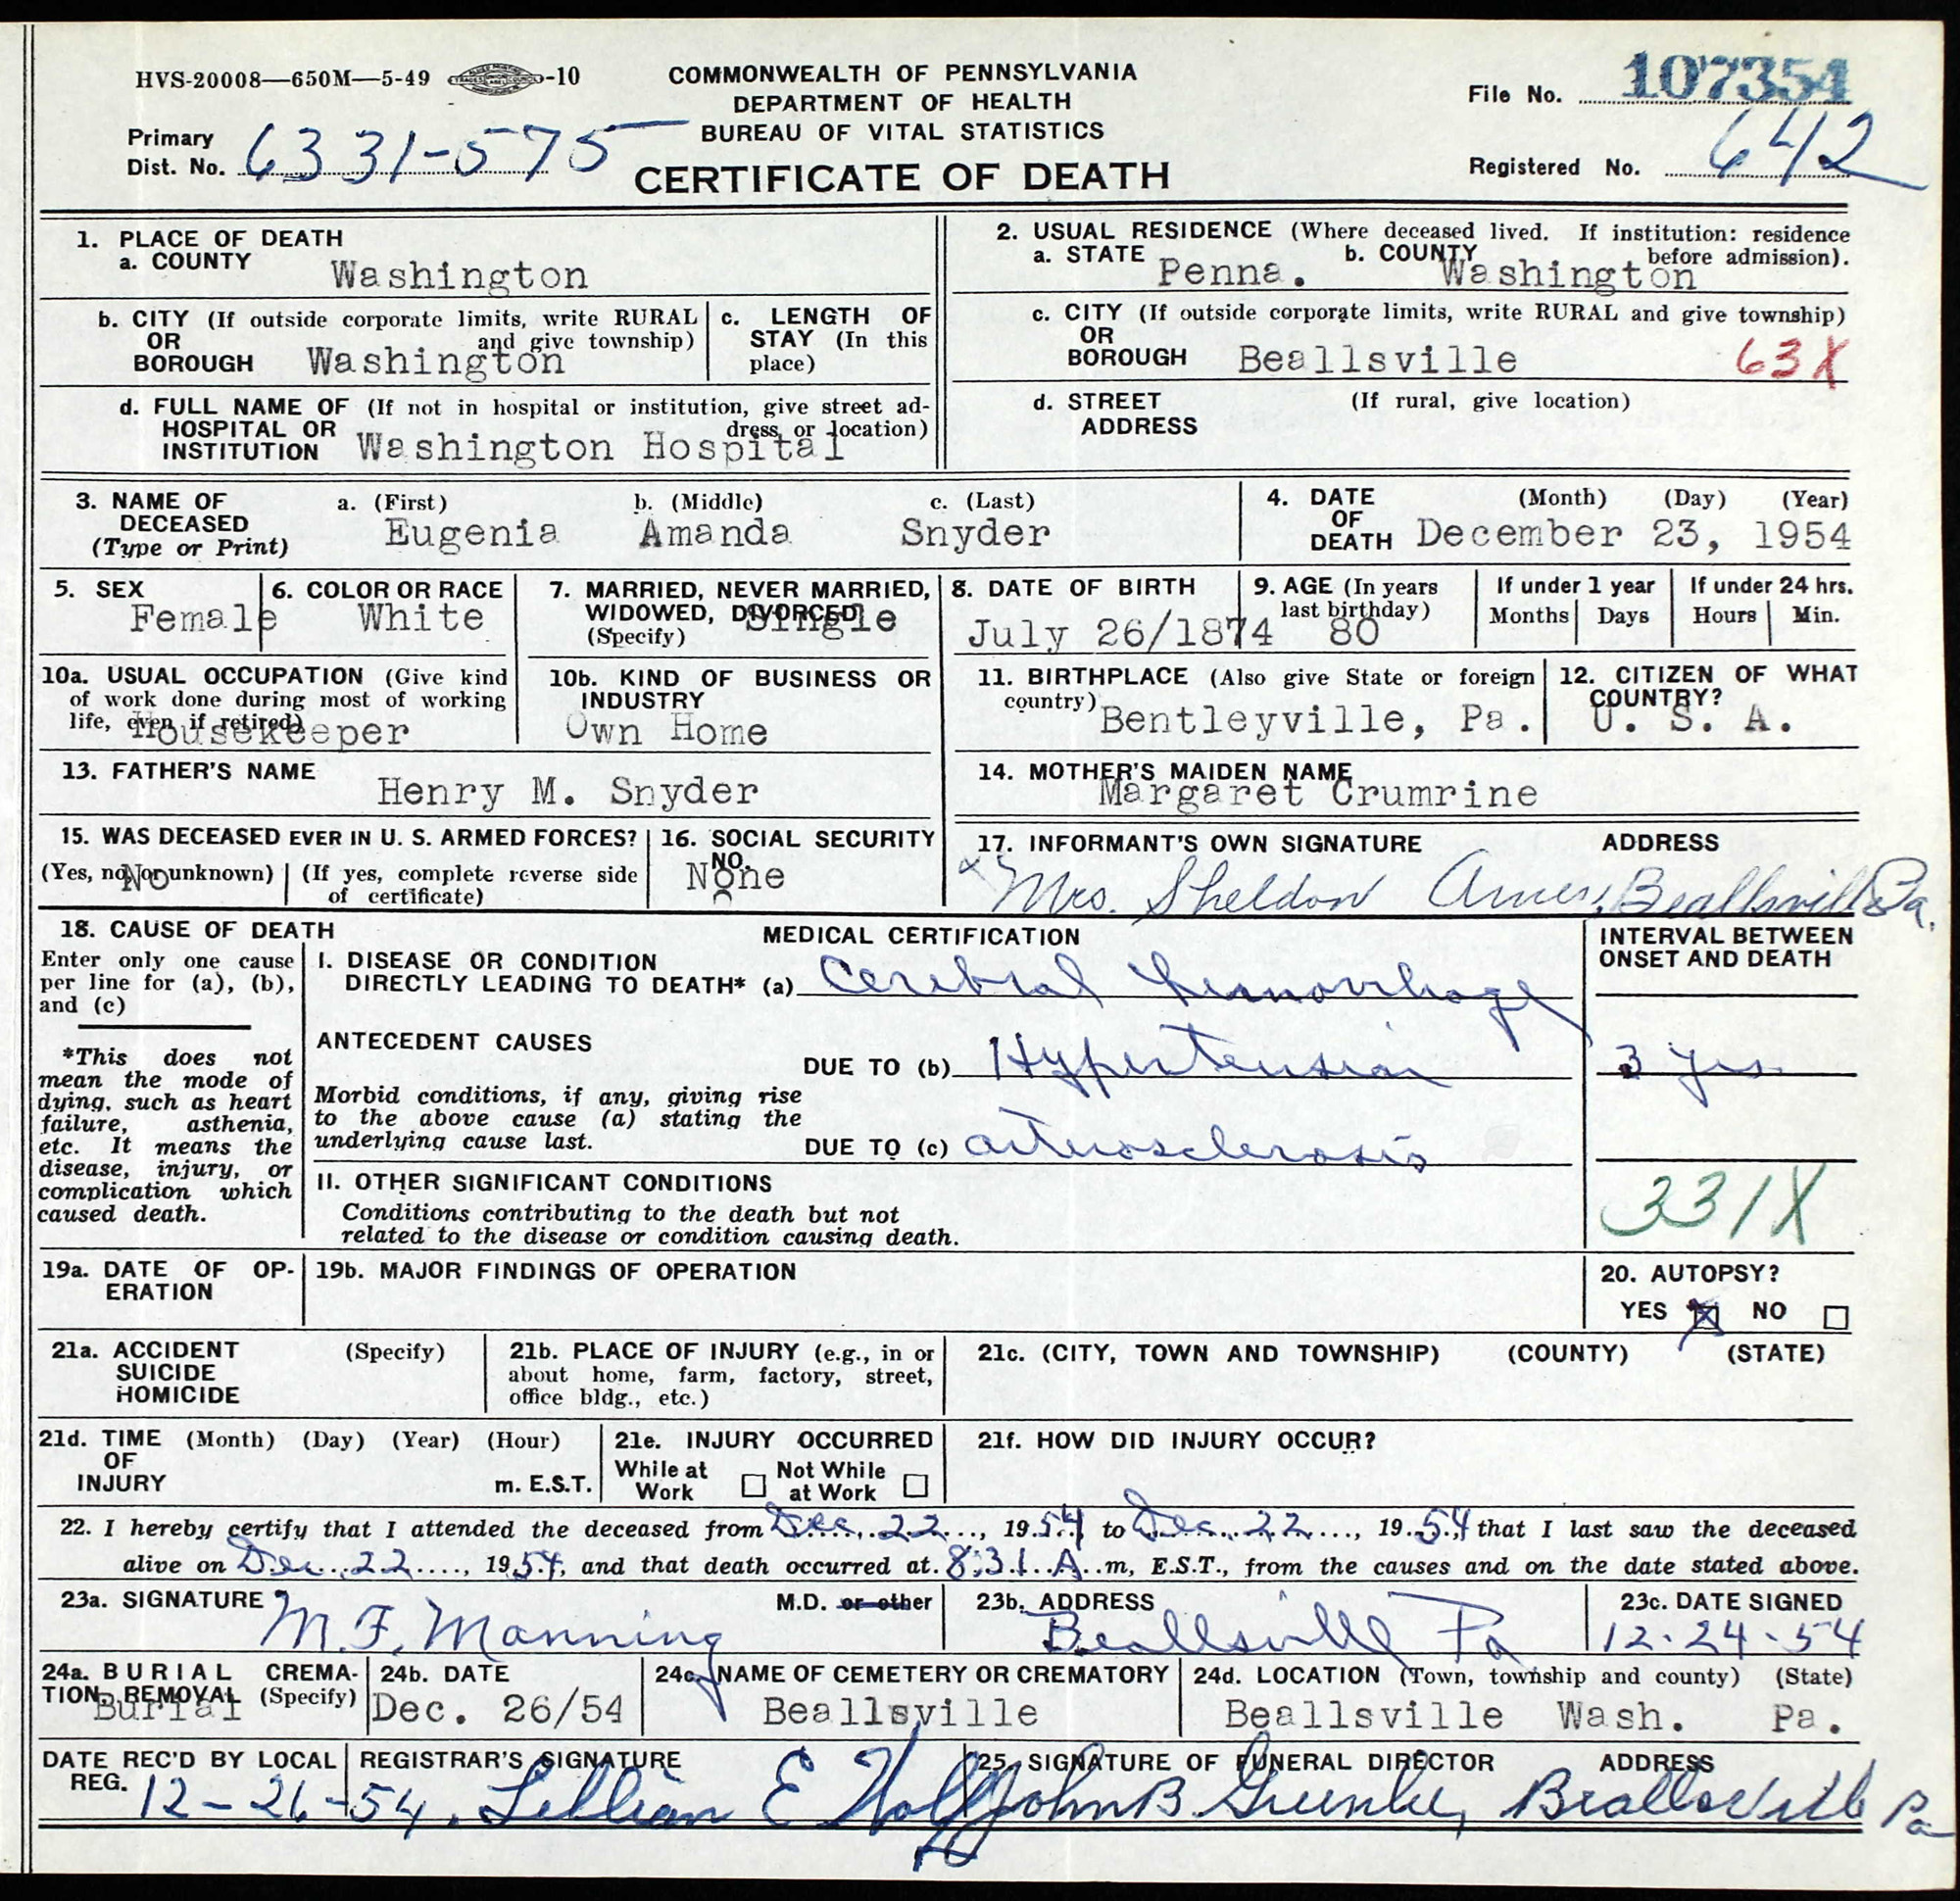 HVS-20008—650M—5-49 -10
COMMONWEALTH OF PENNSYLVANIA
DEPARTMENT OF HEALTH
BUREAU OF VITAL STATISTICS
CERTIFICATE OF DEATH
File No. 107354
Primary
Dist. No. 6331-575
Registered No. 642
1. PLACE OF DEATH
a. COUNTY
Washington
2. USUAL RESIDENCE (Where deceased lived. If institution: residence
before admission).
a. STATE Penna. b. COUNTY Washington
b. CITY (If outside corporate limits, write RURAL
OR and give township)
BOROUGH Washington
c. LENGTH OF
STAY (In this
place)
c. CITY (If outside corporate limits, write RURAL and give township)
OR
BOROUGH Beallsville 63X
d. FULL NAME OF (If not in hospital or institution, give street ad-
HOSPITAL OR dress or location)
INSTITUTION Washington Hospital
d. STREET (If rural, give location)
ADDRESS
3. NAME OF a. (First) b. (Middle) c. (Last)
DECEASED Eugenia Amanda Snyder
(Type or Print)
4. DATE (Month) (Day) (Year)
OF
DEATH December 23, 1954
5. SEX
Female
6. COLOR OR RACE
White
7. MARRIED, NEVER MARRIED,
WIDOWED, DIVORCED
(Specify) Single
8. DATE OF BIRTH
July 26/1874
9. AGE (In years
last birthday)
80
If under 1 year
Months Days
If under 24 hrs.
Hours Min.
10a. USUAL OCCUPATION (Give kind
of work done during most of working
life, even if retired)
Housekeeper
10b. KIND OF BUSINESS OR
INDUSTRY
Own Home
11. BIRTHPLACE (Also give State or foreign
country) Bentleyville, Pa.
12. CITIZEN OF WHAT
COUNTRY?
U. S. A.
13. FATHER'S NAME
Henry M. Snyder
14. MOTHER'S MAIDEN NAME
Margaret Crumrine
15. WAS DECEASED EVER IN U. S. ARMED FORCES?
(Yes, no, or unknown) (If yes, complete reverse side
of certificate)
No
16. SOCIAL SECURITY
NO.
None
17. INFORMANT'S OWN SIGNATURE ADDRESS
x Mrs. Sheldon Ames, Beallsville Pa.
18. CAUSE OF DEATH
Enter only one cause
per line for (a), (b),
and (c)
*This does not
mean the mode of
dying, such as heart
failure, asthenia,
etc. It means the
disease, injury, or
complication which
caused death.
MEDICAL CERTIFICATION
I. DISEASE OR CONDITION
DIRECTLY LEADING TO DEATH* (a) Cerebral hemorrhage
ANTECEDENT CAUSES
DUE TO (b) Hypertension
Morbid conditions, if any, giving rise
to the above cause (a) stating the
underlying cause last.
DUE TO (c) arterosclerosis
II. OTHER SIGNIFICANT CONDITIONS
Conditions contributing to the death but not
related to the disease or condition causing death.
INTERVAL BETWEEN
ONSET AND DEATH
3 yrs.
331X
19a. DATE OF OP-
ERATION
19b. MAJOR FINDINGS OF OPERATION
20. AUTOPSY?
YES X NO
21a. ACCIDENT (Specify)
SUICIDE
HOMICIDE
21b. PLACE OF INJURY (e.g., in or
about home, farm, factory, street,
office bldg., etc.)
21c. (CITY, TOWN AND TOWNSHIP) (COUNTY) (STATE)
21d. TIME (Month) (Day) (Year) (Hour)
OF
INJURY m. E.S.T.
21e. INJURY OCCURRED
While at Not While
Work at Work
21f. HOW DID INJURY OCCUR?
22. I hereby certify that I attended the deceased from Dec. 22, 1954 to Dec. 22, 1954 that I last saw the deceased
alive on Dec. 22, 1954, and that death occurred at 8:31 A m, E.S.T., from the causes and on the date stated above.
23a. SIGNATURE M.D. or other
M. F. Manning
23b. ADDRESS
Beallsville Pa
23c. DATE SIGNED
12-24-54
24a. BURIAL CREMA-
TION, REMOVAL (Specify)
Burial
24b. DATE
Dec. 26/54
24c. NAME OF CEMETERY OR CREMATORY
Beallsville
24d. LOCATION (Town, township and county) (State)
Beallsville Wash. Pa.
DATE REC'D BY LOCAL
REG. 12-26-54.
REGISTRAR'S SIGNATURE
Lillian E
25. SIGNATURE OF FUNERAL DIRECTOR ADDRESS
John B Greenlee, Beallsville Pa